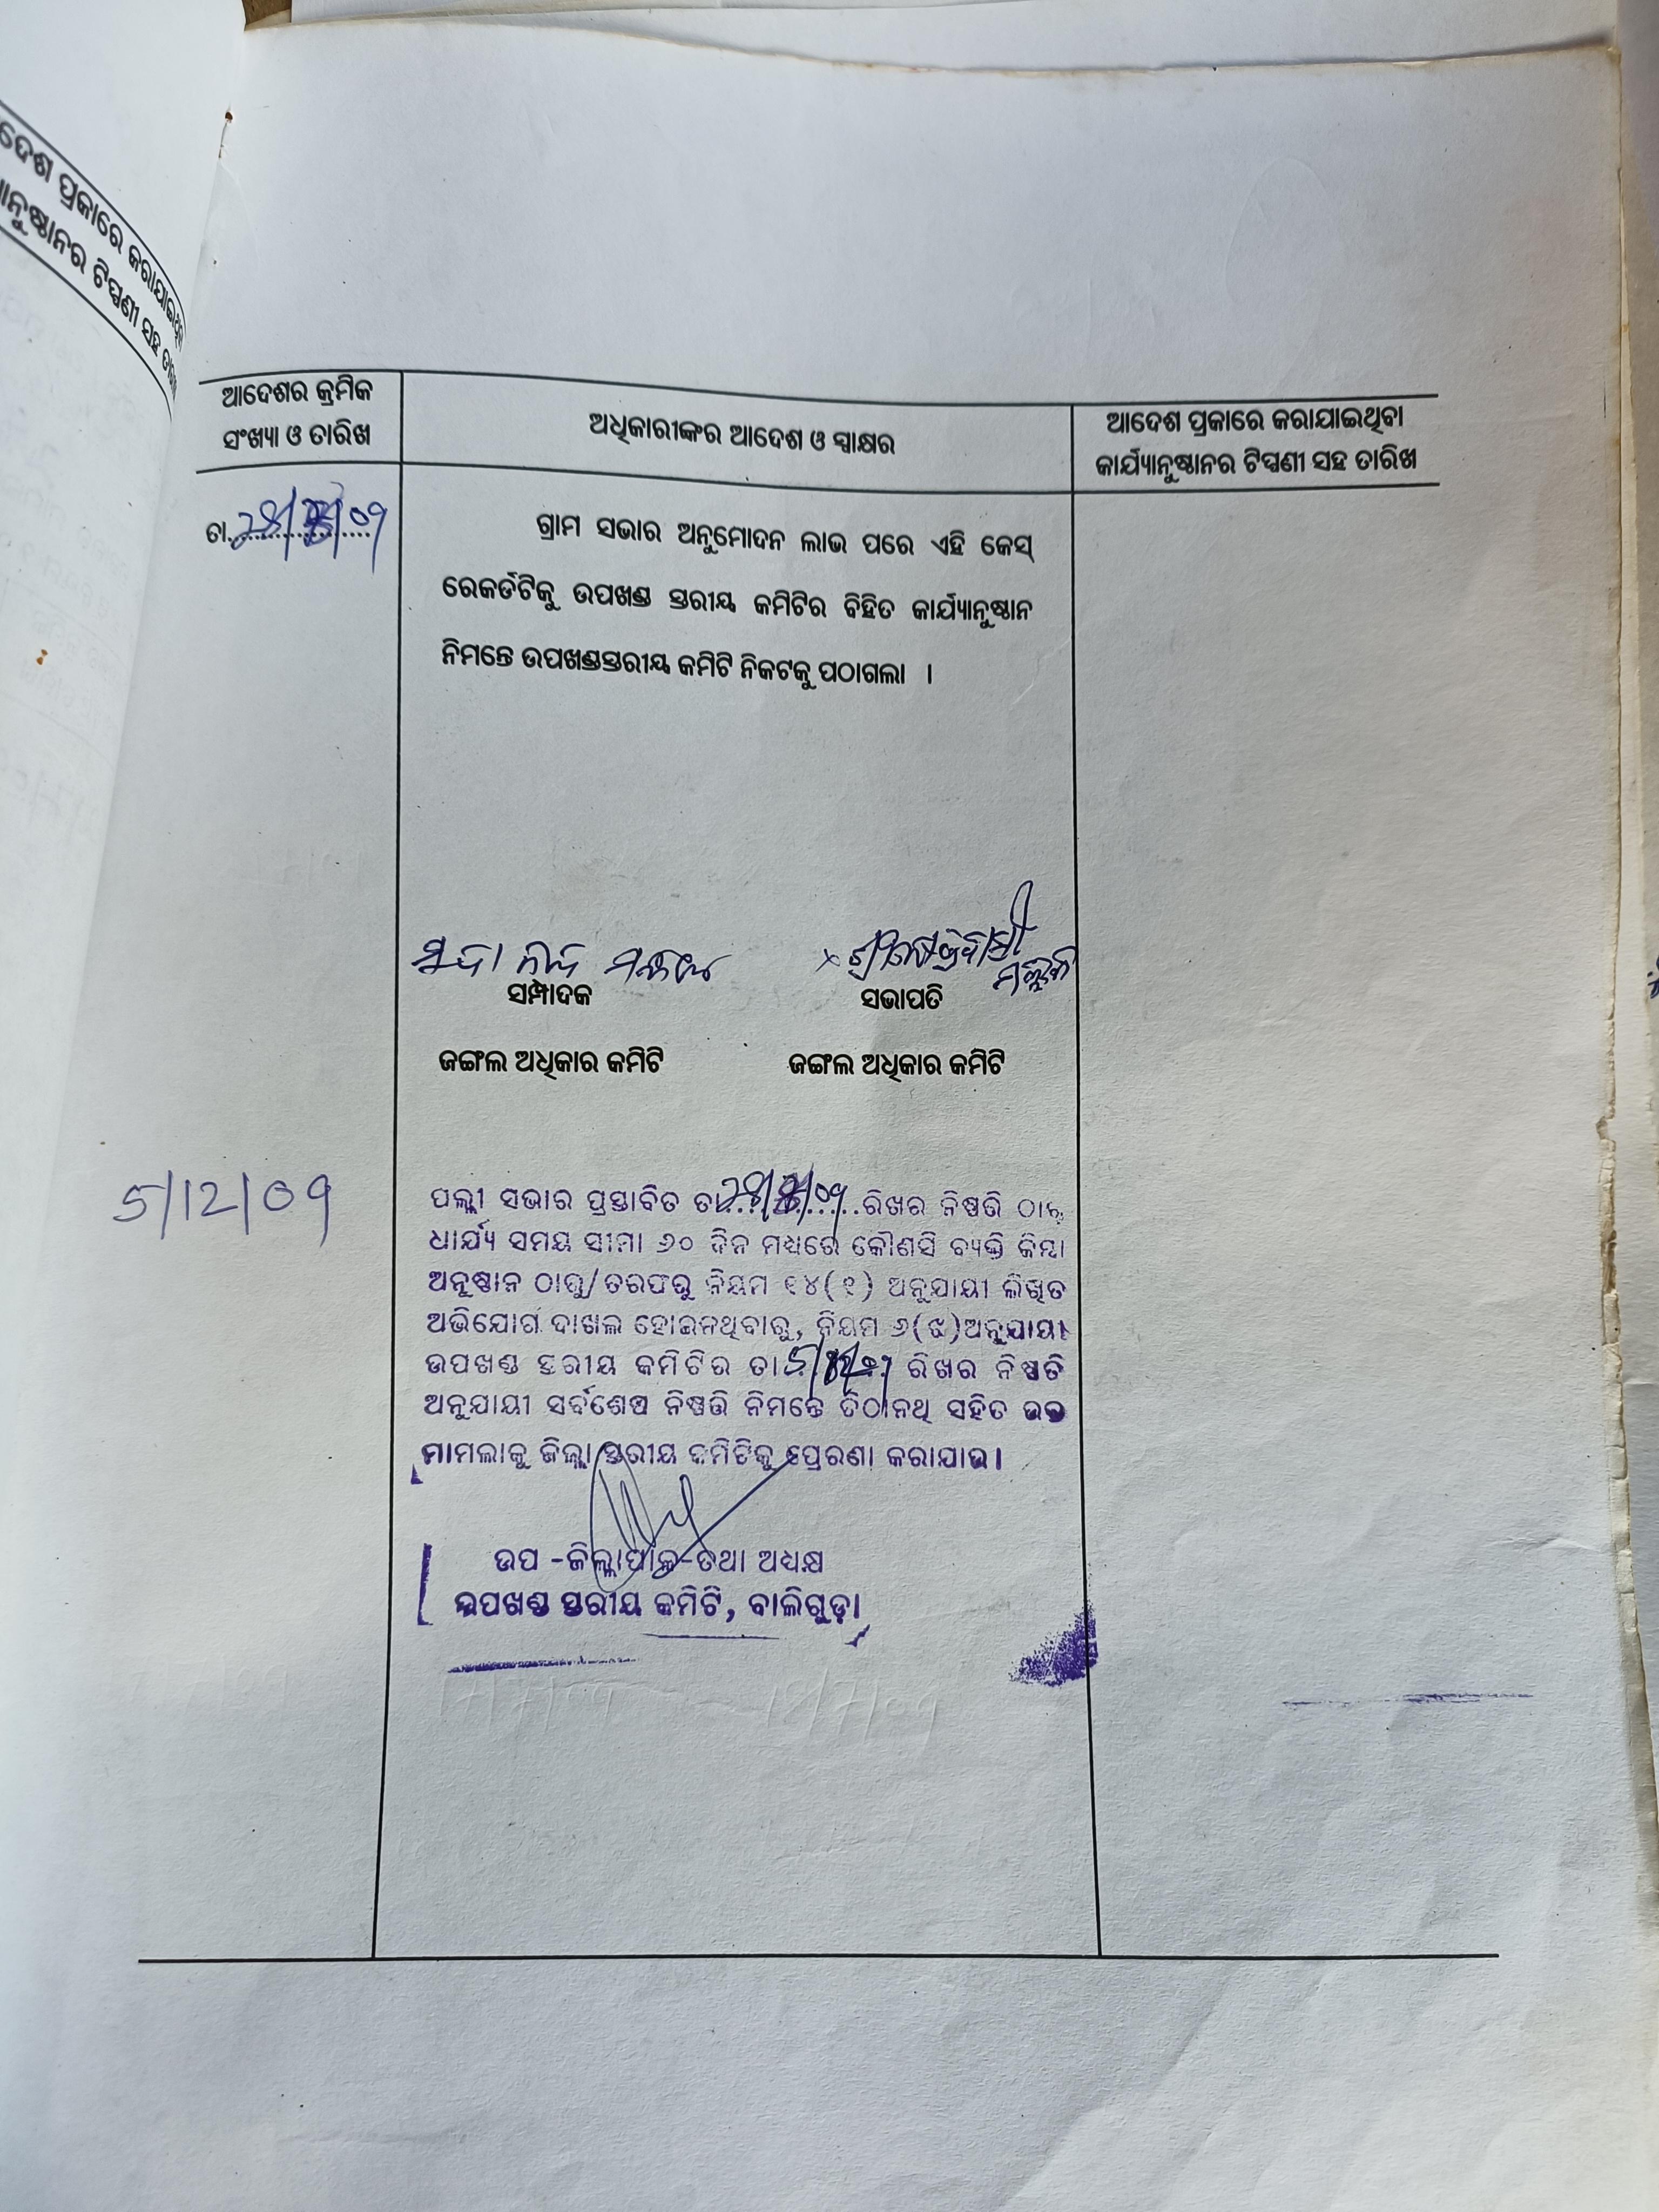 ଦେଶ ପ୍ରକାରେ କରାଯାଇଥିବା
ନୁଷ୍ଠାନର ଟିପ୍ପଣୀ ସହ
ଆଦେଶର କ୍ରମିକ
ସଂଖ୍ୟା ଓ ତାରିଖ
ଅଧିକାରୀଙ୍କର ଆଦେଶ ଓ ସ୍ୱାକ୍ଷର
ଆଦେଶ ପ୍ରକାରେ କରାଯାଇଥିବା
କାର୍ଯ୍ୟାନୁଷ୍ଠାନର ଟିପ୍ପଣୀ ସହ ତାରିଖ
ତା.
ଗ୍ରାମ ସଭାର ଅନୁମୋଦନ ଲାଭ ପରେ ଏହି କେସ୍
ରେକର୍ଡଟିକୁ ଉପଖଣ୍ଡ ସ୍ତରୀୟ କମିଟିର ବିହିତ କାର୍ଯ୍ୟାନୁଷ୍ଠାନ
ନିମନ୍ତେ ଉପଖଣ୍ଡସ୍ତରୀୟ କମିଟି ନିକଟକୁ ପଠାଗଲା ।
ସମ୍ପାଦକ
ସଭାପତି
ଜଙ୍ଗଲ ଅଧିକାର କମିଟି
ଜଙ୍ଗଲ ଅଧିକାର କମିଟି
5/12/09
ପଲ୍ଲୀ ସଭାର ପ୍ରସ୍ତାବିତ ତା ରିଖର ନିଷ୍ପତ୍ତି ଠାରୁ
ଧାର୍ଯ୍ୟ ସମୟ ସୀମା ୬୦ ଦିନ ମଧ୍ୟରେ କୌଣସି ବ୍ୟକ୍ତି କିମ୍ବା
ଅନୁଷ୍ଠାନ ଠାରୁ/ତରଫରୁ ନିୟମ ୧୪(୧) ଅନୁଯାୟୀ ଲିଖିତ
ଅଭିଯୋଗ ଦାଖଲ ହୋଇନଥିବାରୁ, ନିୟମ ୬(ଝ)ଅନୁଯାୟୀ
ଉପଖଣ୍ଡ ସ୍ତରୀୟ କମିଟିର ତା ରିଖର ନିଷ୍ପତି
ଅନୁଯାୟୀ ସର୍ବଶେଷ ନିଷ୍ପତ୍ତି ନିମନ୍ତେ ଚିଠାନଥି ସହିତ ଉକ୍ତ
ମାମଲାକୁ ଜିଲ୍ଲା ସ୍ତରୀୟ କମିଟିକୁ ପ୍ରେରଣା କରାଯାଉ।
ଉପ -ଜିଲ୍ଲାପାଳ-ତଥା ଅଧ୍ୟକ୍ଷ
ଉପଖଣ୍ଡ ସ୍ତରୀୟ କମିଟି, ବାଲିଗୁଡ଼ା